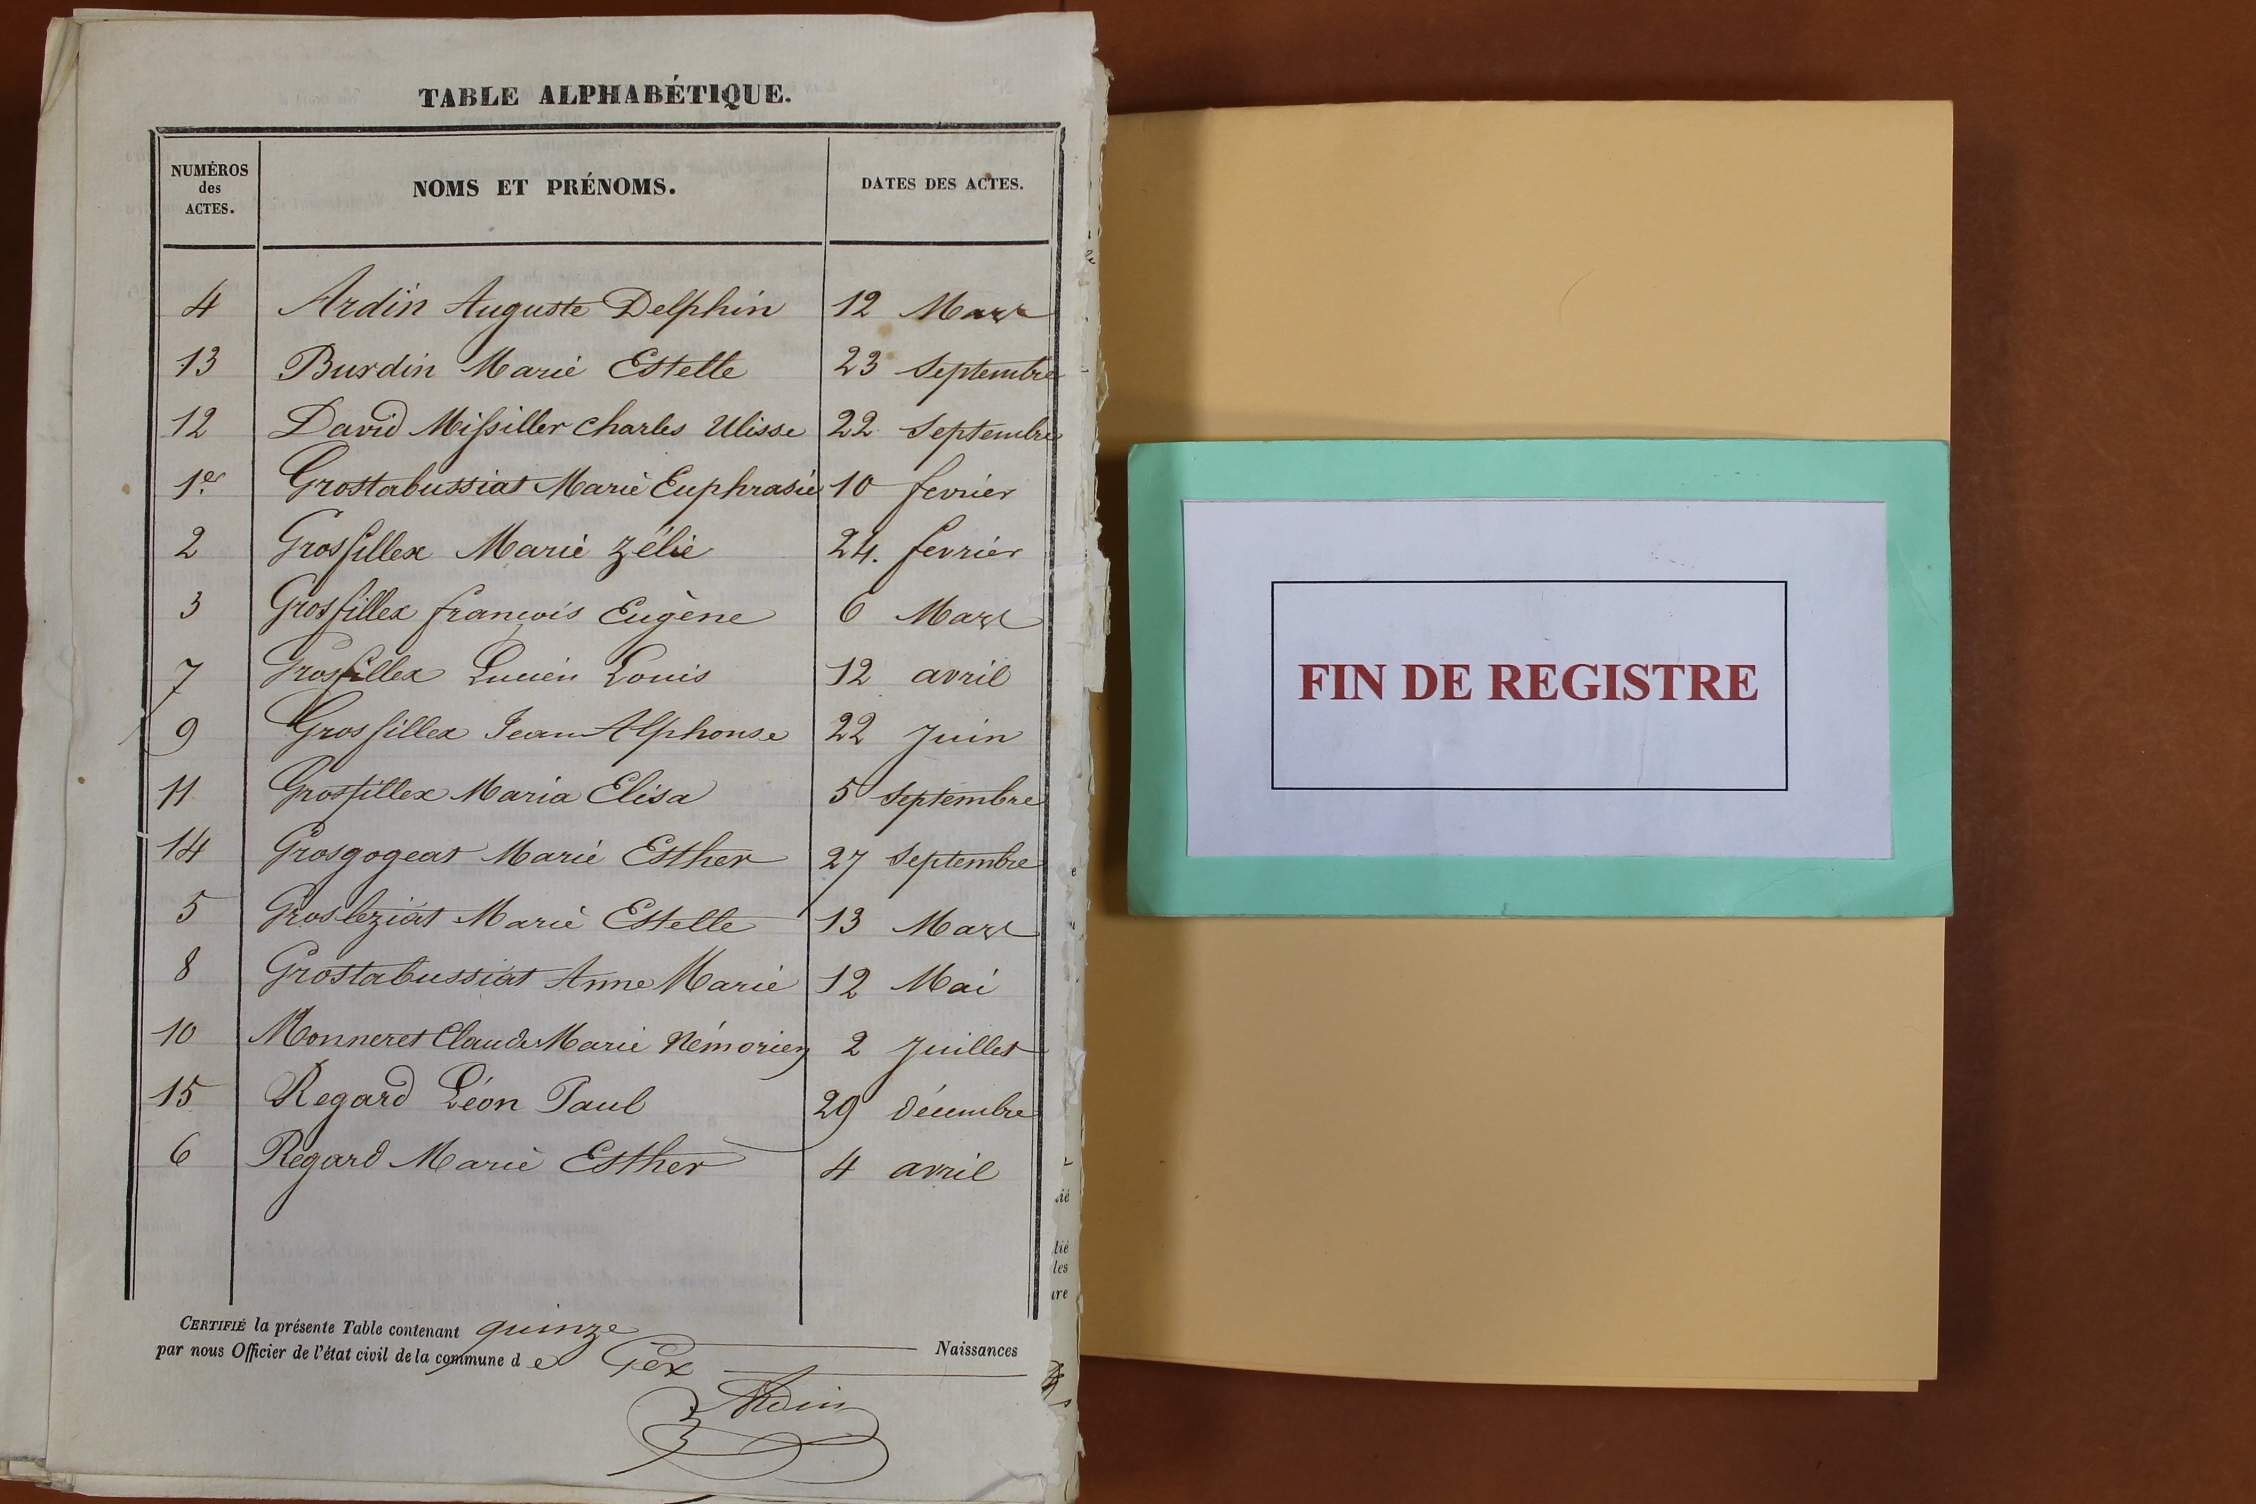 TABLE ALPHABÉTIQUE.
NUMÉROS des ACTES. NOMS ET PRÉNOMS. DATES DES ACTES.
4 Ardin Auguste Delphin 12 Mars
13 Burdin Marie Estelle 23 Septembre
12 David Missiller Charles Ulisse 22 Septembre
1er Grostabussiat Marie Euphrasie 10 fevrier
2 Grosfillex Marie Zélie 24. fevrier
3 Grosfillex françois Eugène 6 Mars
7 Grosfillex Lucien Louis 12 avril
9 Grosfillex Jean Alphonse 22 Juin
11 Grosfillex Maria Elisa 5 Septembre
14 Grosgogeat Marie Esther 27 Septembre
5 Grosleziat Marie Estelle 13 Mars
8 Grostabussiat Anne Marie 12 Mai
10 Monneret Claude Marie Némorien 2 Juillet
15 Regard Léon Paul 29 décembre
6 Regard Marie Esther 4 avril
CERTIFIÉ la présente Table contenant quinze Naissances
par nous Officier de l'état civil de la commune de
Ardin
FIN DE REGISTRE